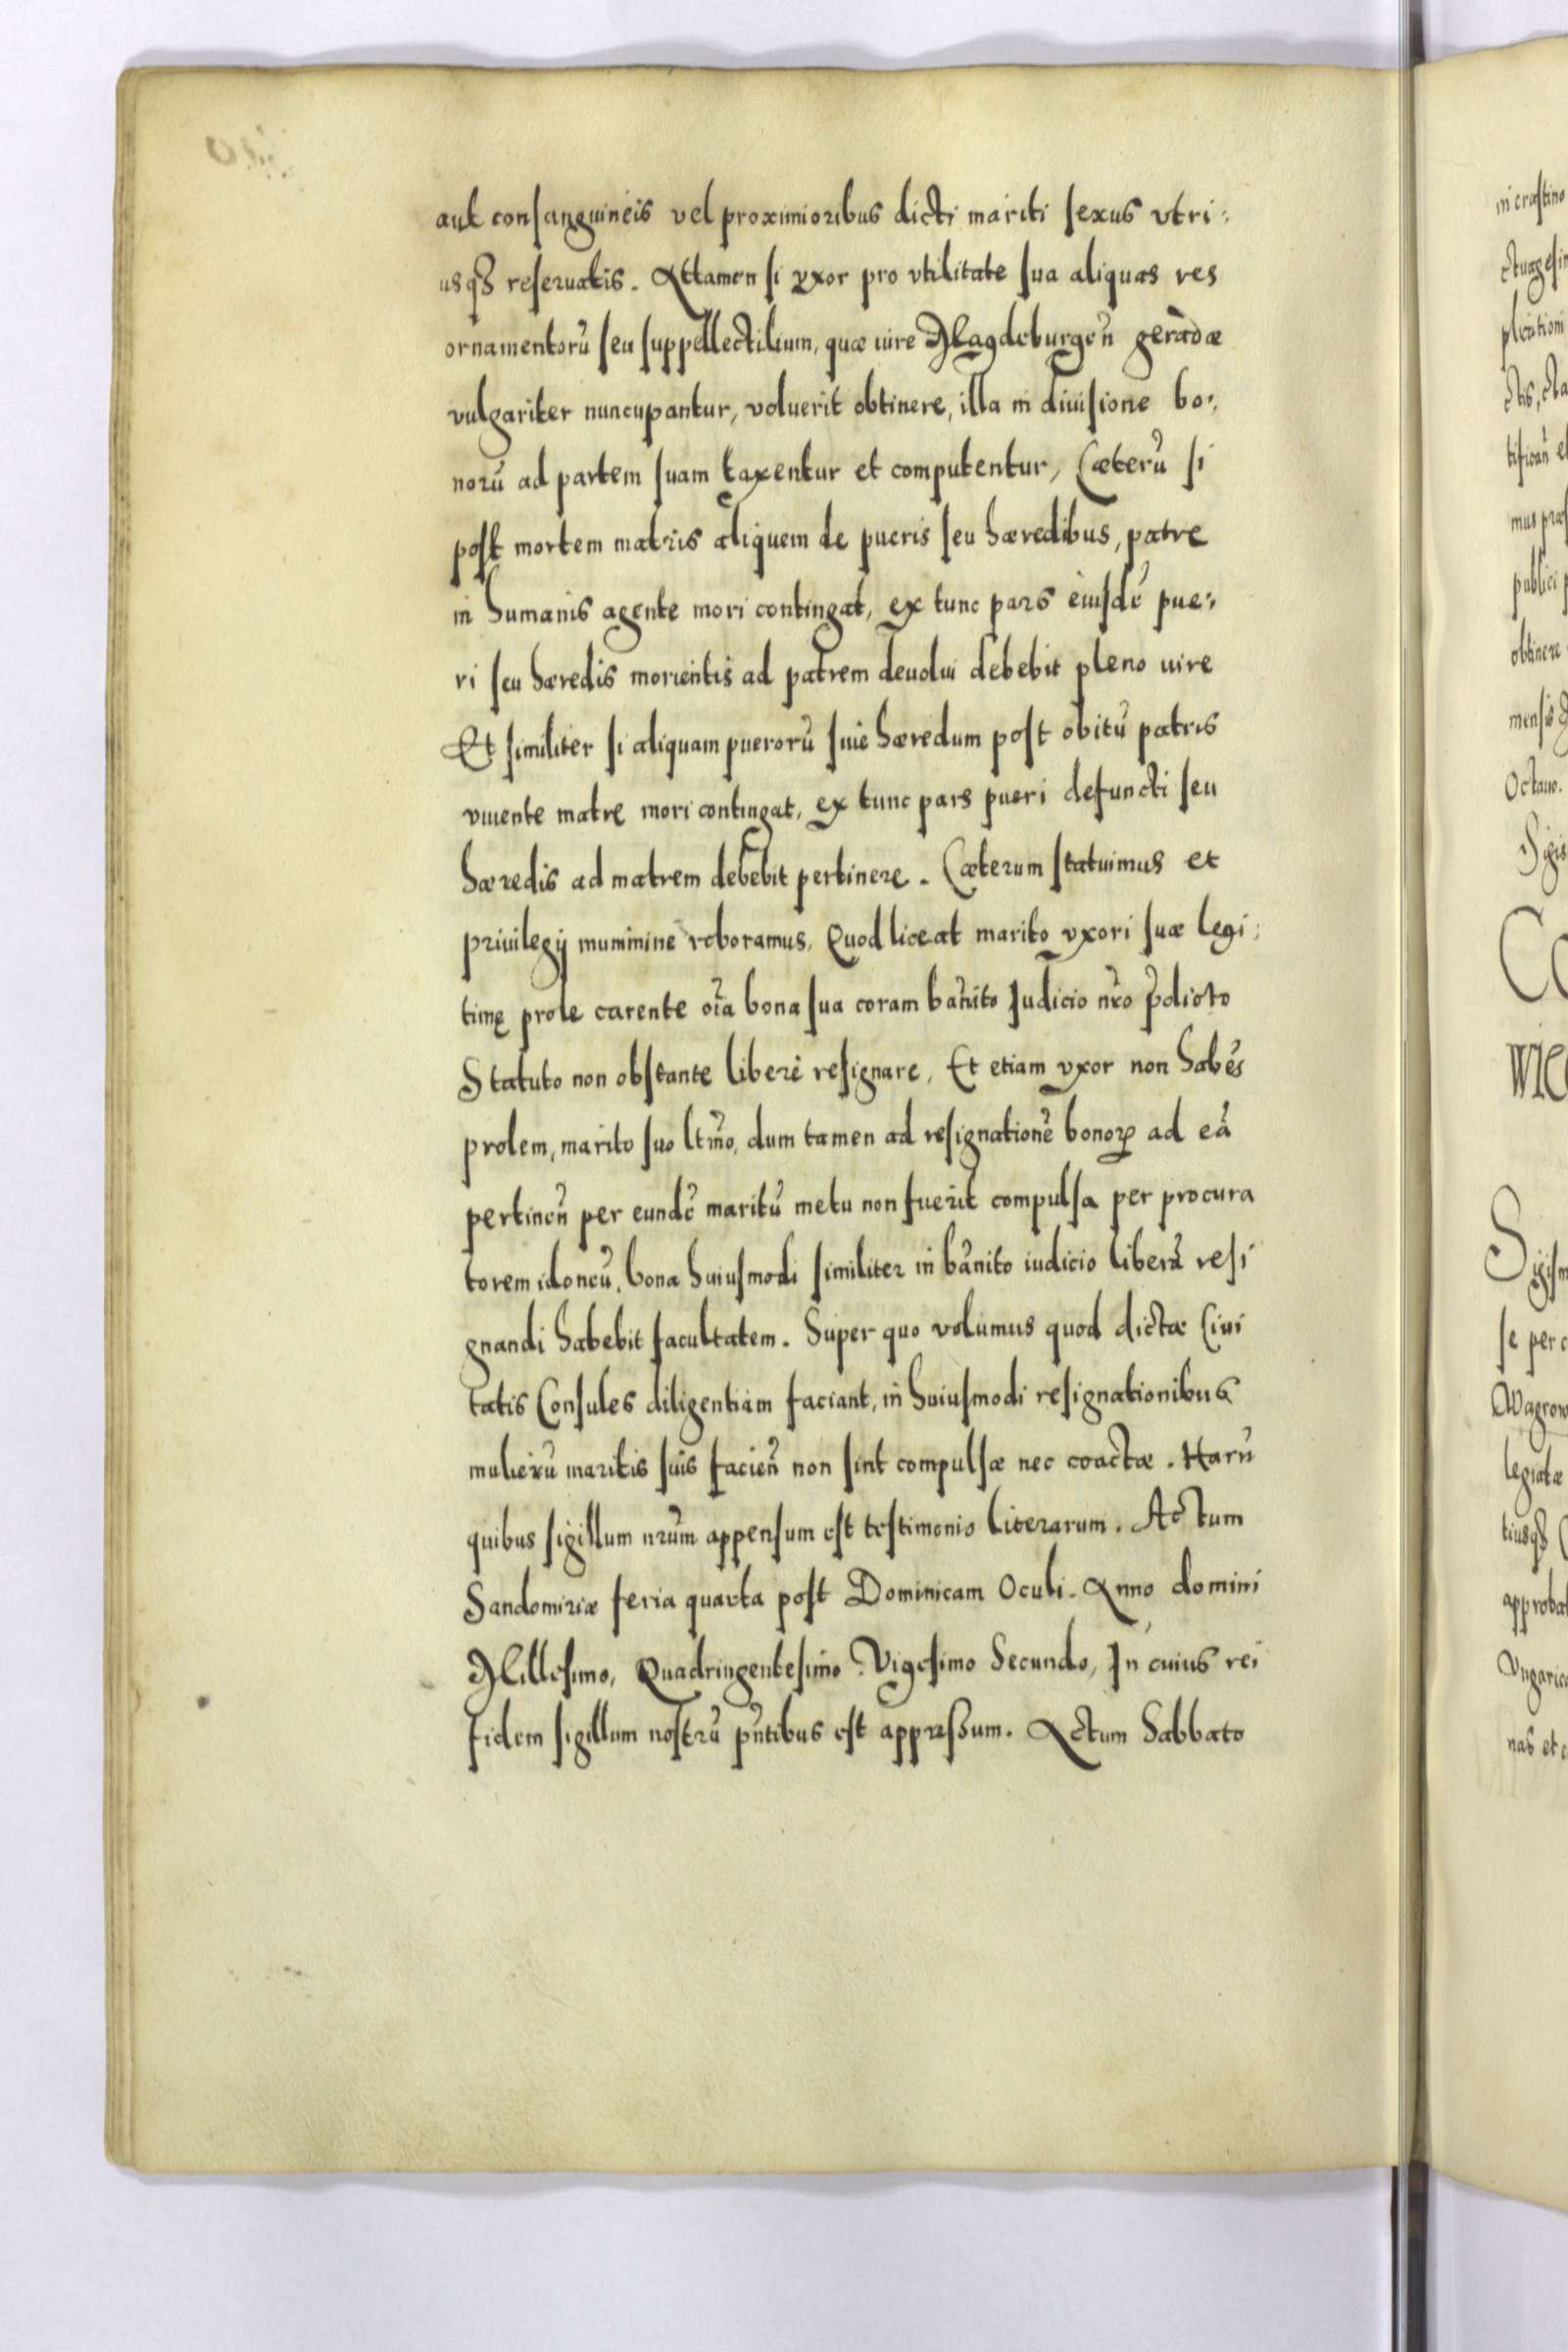 aut consanguineis vel proximioribus dicti mariti sexus vtri:
usq₃ reseruatis. Attamen si vxor pro vtilitate sua aliquas res
ornamentorũ seu suppellectilium, quæ iure Magdeburgeñ geradæ
vulgariter nuncupantur, voluerit obtinere, illa in diuisione bo:,
norũ ad partem suam taxentur et computentur, Cæterũ si
post mortem matris aliquem de pueris seu hæredibus, patre
in humanis agente mori contingat, ex tunc pars eiusdẽ pue:,
ri seu hæredis morientis ad patrem deuolui debebit pleno iure
Et similiter si aliquam puerorũ siue hæredum post obitũ patris
viuente matre mori contingat, ex tunc pars pueri defuncti seu
hæredis ad matrem debebit pertinere. Cæterum statuimus et
priuilegij munimine roboramus, Quod liceat marito vxori suæ legi:
timę prole carente oĩa bona sua coram bañito Judicio nr̃o p̃dicto
Statuto non obstante liberè resignare, Et etiam vxor non habẽs
prolem, marito suo ltm̃o, dum tamen ad resignationẽ bonoꝝ ad eã
pertineñ per eundẽ maritũ metu non fuerit compulsa per procura
torem idoneũ, bona huiusmodi similiter in bañito iudicio liberã resi
gnandi habebit facultatem. Super quo volumus quod dictæ Ciui
tatis Consules diligentiam faciant, in huiusmodi resignationibus
mulierũ maritis suis facieñ non sint compulsæ nec coactæ. Harũ
quibus sigillum nr̃um appensum est testimonio literarum. Actum
Sandomiriæ feria quarta post Dominicam Oculi. Anno domini
Millesimo, Quadringentesimo Vigesimo Secundo, In cuius rei
fidem sigillum nostrũ pñtibus est appressum. Actum Sabbato